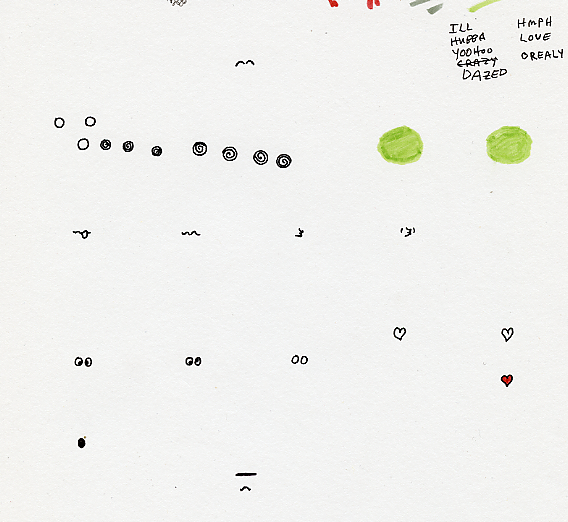 ILL
HUBBA
YOOHOO
CRAZY
DAZED
HMPH
LOVE
OREALY